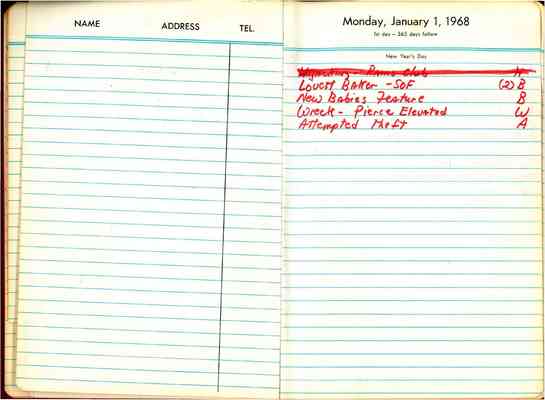 NAME ADDRESS TEL.
Monday, January 1, 1968
1st day — 365 days follow
New Year's Day
Club
Lovett Baker - SoF (2) B
New Babies Feature B
Wreck - Pierce Elevated W
Attempted theft A